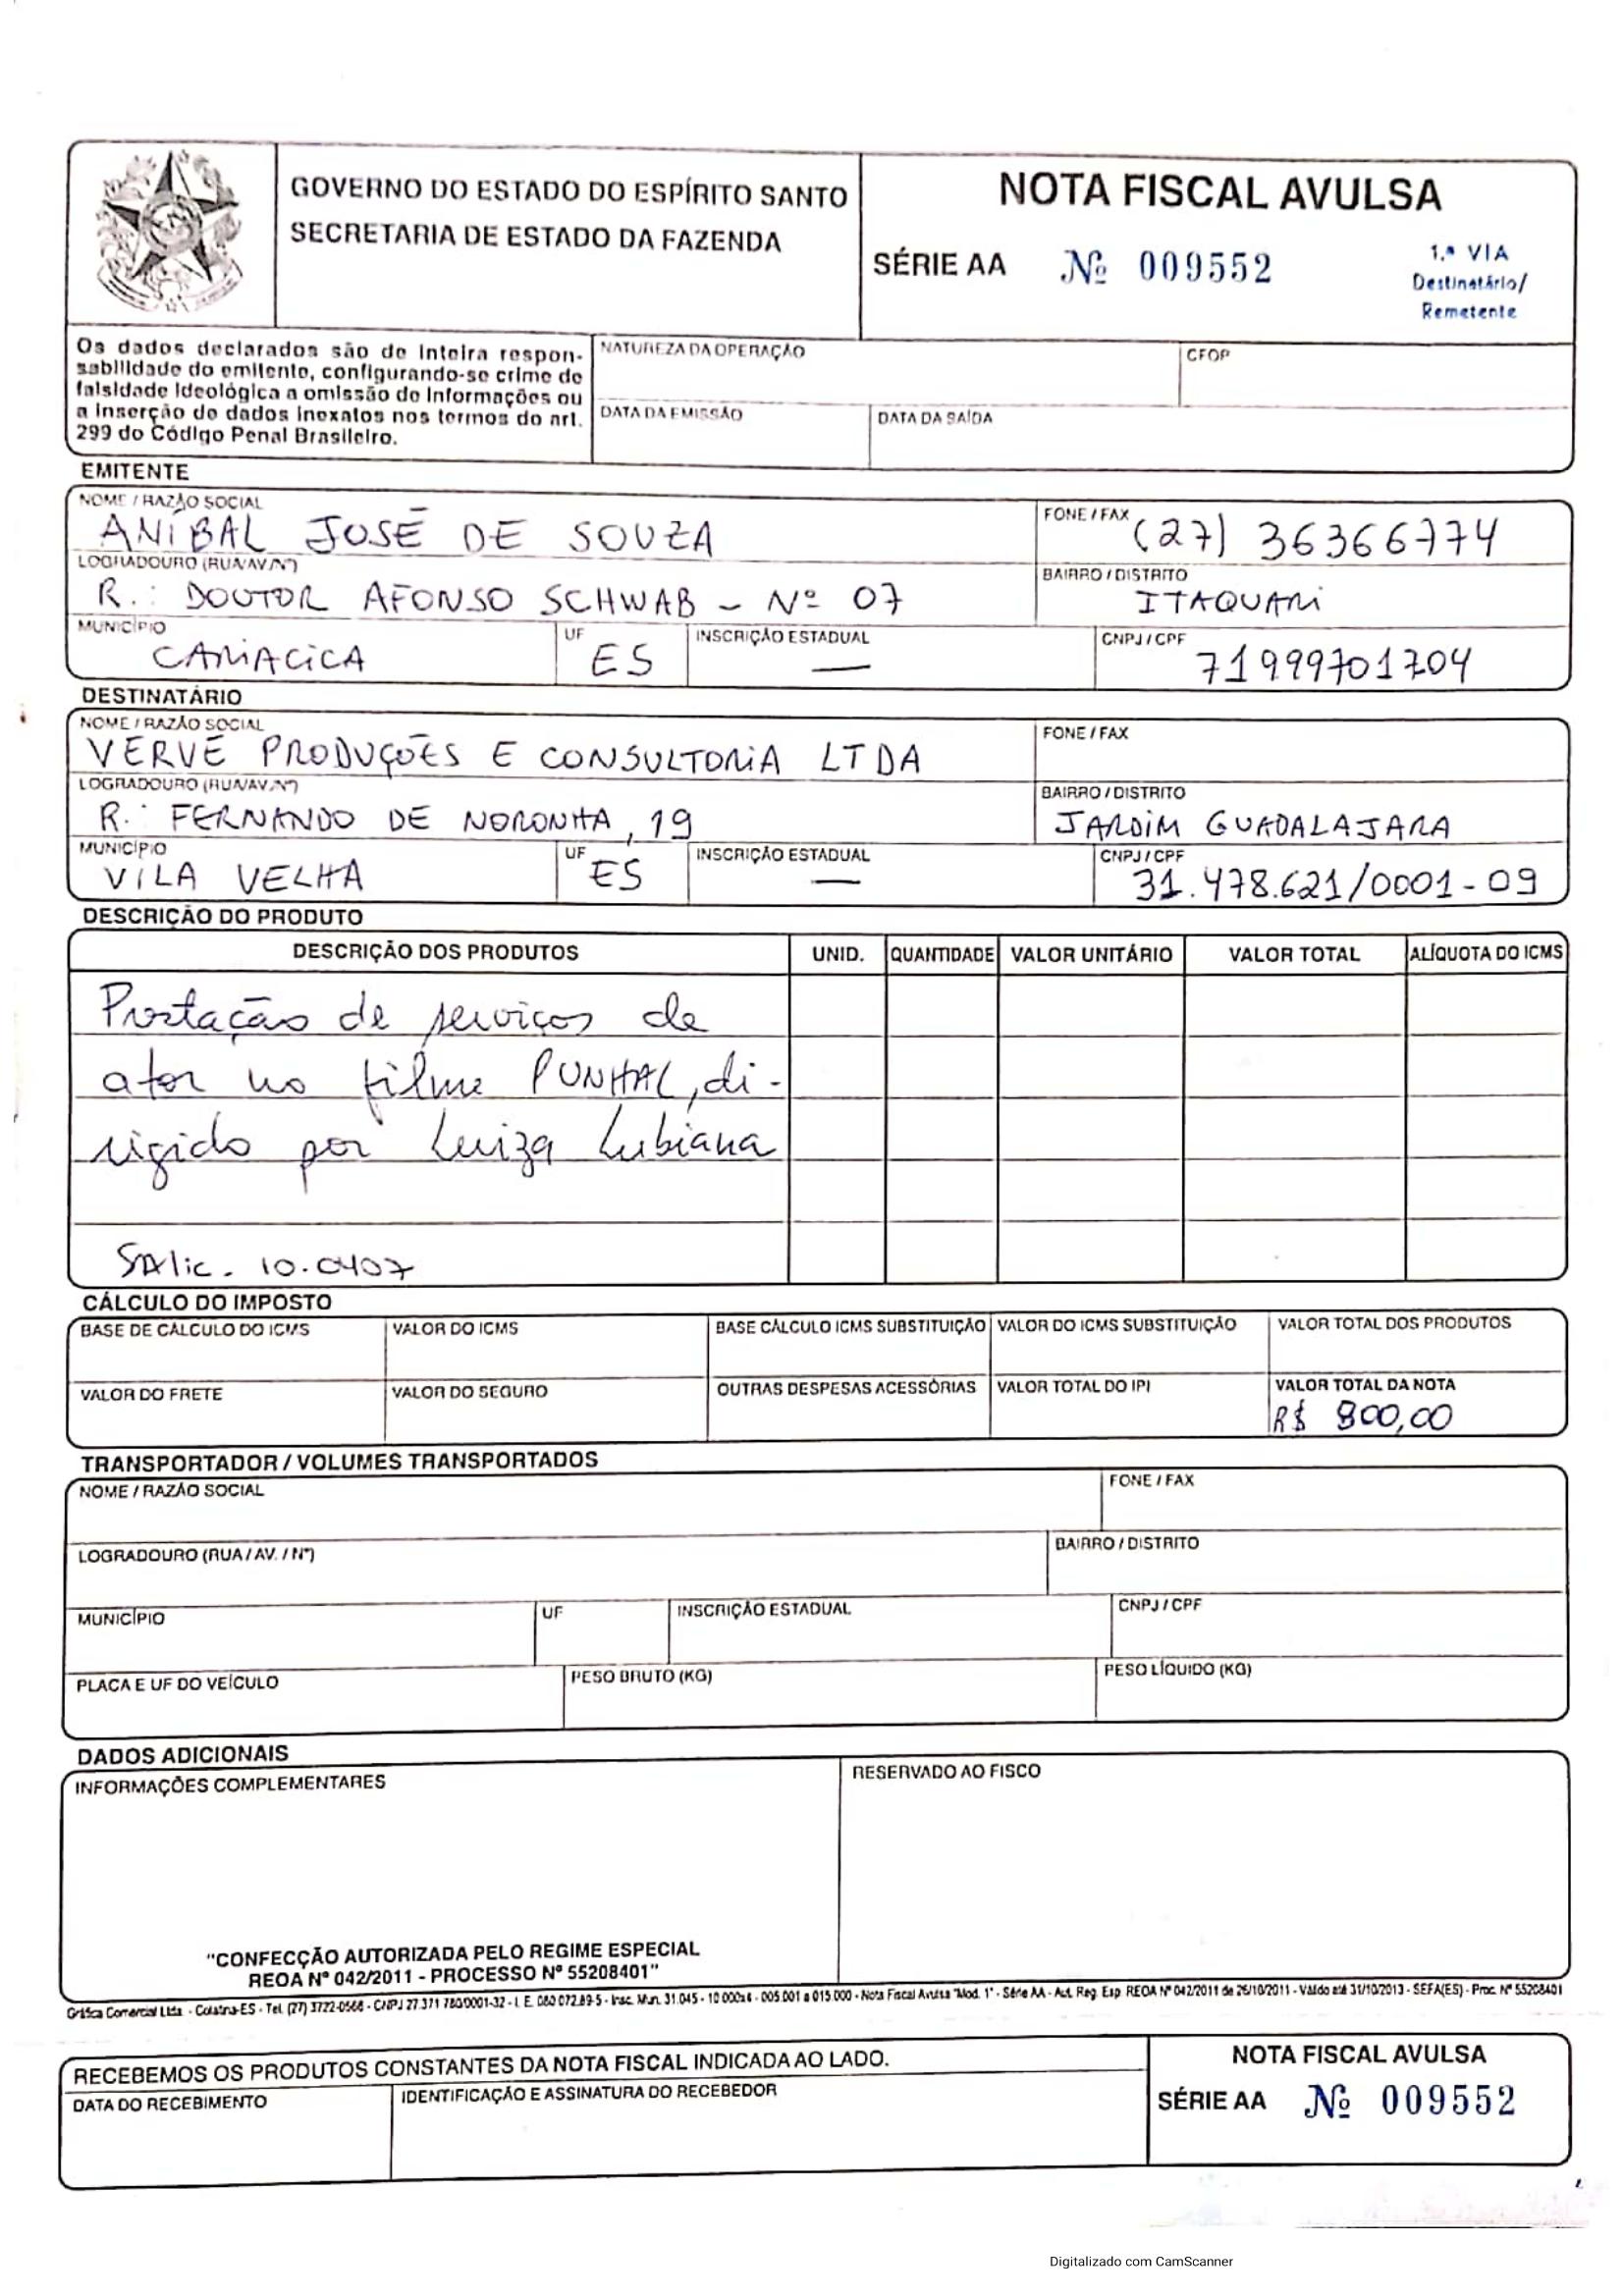 GOVERNO DO ESTADO DO ESPÍRITO SANTO
SECRETARIA DE ESTADO DA FAZENDA
NOTA FISCAL AVULSA
SÉRIE AA Nº 009552
1.ª VIA
Destinatário/
Remetente
Os dados declarados são de inteira respon-
sabilidade do emitente, configurando-se crime de
falsidade ideológica a omissão de informações ou
a inserção de dados inexatos nos termos do art.
299 do Código Penal Brasileiro.
NATUREZA DA OPERAÇÃO CFOP
DATA DA EMISSÃO DATA DA SAÍDA
EMITENTE
NOME / RAZÃO SOCIAL FONE / FAX
ANÍBAL JOSÉ DE SOUZA (27) 36366774
LOGRADOURO (RUA/AV./Nº) BAIRRO / DISTRITO
R.: DOUTOR AFONSO SCHWAB - Nº 07 ITAQUARI
MUNICÍPIO UF INSCRIÇÃO ESTADUAL CNPJ / CPF
CARIACICA ES — 71999701704
DESTINATÁRIO
NOME / RAZÃO SOCIAL FONE / FAX
VERVE PRODUÇÕES E CONSULTORIA LTDA
LOGRADOURO (RUA/AV./Nº) BAIRRO / DISTRITO
R: FERNANDO DE NORONHA, 19 JARDIM GUADALAJARA
MUNICÍPIO UF INSCRIÇÃO ESTADUAL CNPJ / CPF
VILA VELHA ES — 31.478.621/0001-09
DESCRIÇÃO DO PRODUTO
DESCRIÇÃO DOS PRODUTOS UNID. QUANTIDADE VALOR UNITÁRIO VALOR TOTAL ALÍQUOTA DO ICMS
Prestação de serviços de
ator no filme PUNHAL, di-
rigido por Luiza Lubiana
SAlic. 10.0407
CÁLCULO DO IMPOSTO
BASE DE CÁLCULO DO ICMS VALOR DO ICMS BASE CÁLCULO ICMS SUBSTITUIÇÃO VALOR DO ICMS SUBSTITUIÇÃO VALOR TOTAL DOS PRODUTOS
VALOR DO FRETE VALOR DO SEGURO OUTRAS DESPESAS ACESSÓRIAS VALOR TOTAL DO IPI VALOR TOTAL DA NOTA
R$ 800,00
TRANSPORTADOR / VOLUMES TRANSPORTADOS
NOME / RAZÃO SOCIAL FONE / FAX
LOGRADOURO (RUA / AV. / Nº) BAIRRO / DISTRITO
MUNICÍPIO UF INSCRIÇÃO ESTADUAL CNPJ / CPF
PLACA E UF DO VEÍCULO PESO BRUTO (KG) PESO LÍQUIDO (KG)
DADOS ADICIONAIS
INFORMAÇÕES COMPLEMENTARES RESERVADO AO FISCO
"CONFECÇÃO AUTORIZADA PELO REGIME ESPECIAL
REOA Nº 042/2011 - PROCESSO Nº 55208401"
Gráfica Comercial Ltda. - Colatina-ES - Tel. (27) 3722-0566 - CNPJ 27.371.780/0001-32 - I. E. 080.072.89-5 - Insc. Mun. 31.045 - 10.000x4 - 005.001 a 015.000 - Nota Fiscal Avulsa "Mod. 1" - Série AA - Aut. Reg. Esp. REOA Nº 042/2011 de 26/10/2011 - Válido até 31/10/2013 - SEFA(ES) - Proc. Nº 55208401
RECEBEMOS OS PRODUTOS CONSTANTES DA NOTA FISCAL INDICADA AO LADO.
DATA DO RECEBIMENTO IDENTIFICAÇÃO E ASSINATURA DO RECEBEDOR
NOTA FISCAL AVULSA
SÉRIE AA Nº 009552
Digitalizado com CamScanner